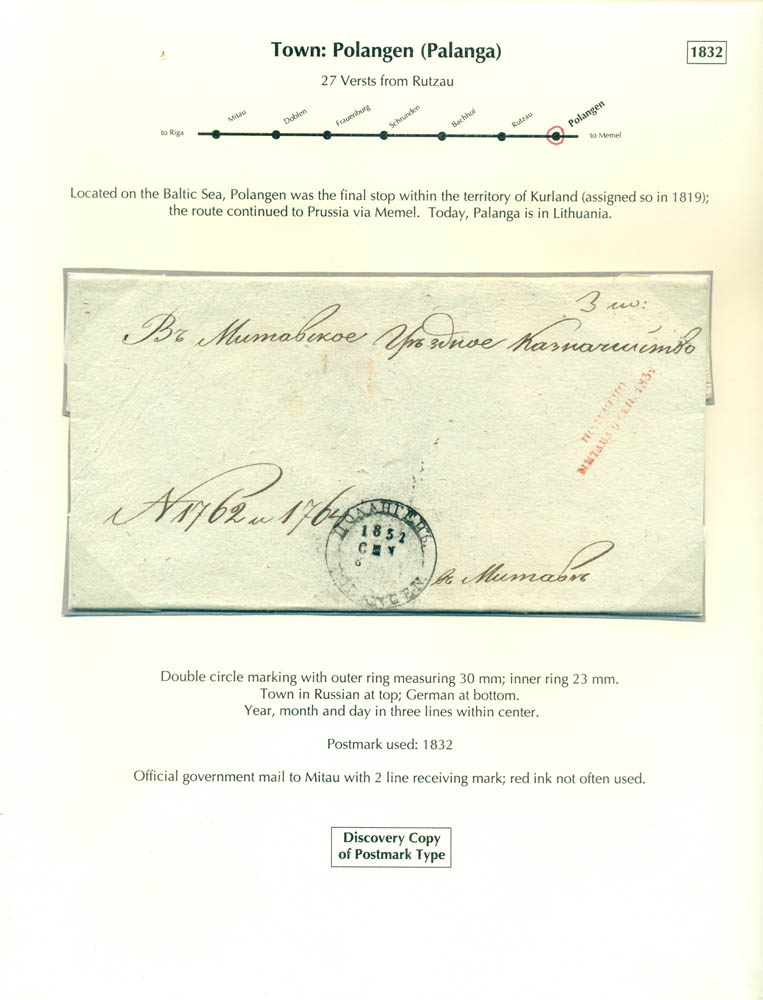 Town: Polangen (Palanga)
1832
27 Versts from Rutzau
to Riga
Mitau
Doblen
Frauenburg
Schrunden
Bachhof
Rutzau
Polangen
to Memel
Located on the Baltic Sea, Polangen was the final stop within the territory of Kurland (assigned so in 1819);
the route continued to Prussia via Memel. Today, Palanga is in Lithuania.
Въ Митавское Уѣздное Казначейство
ПОЛУЧЕНО
МИТАВА СЕН. 1832
N 1762 и 1764
ПОЛАНГЕНЪ
1832
СЕН
6
POLANGEN
въ Митавѣ
Double circle marking with outer ring measuring 30 mm; inner ring 23 mm.
Town in Russian at top; German at bottom.
Year, month and day in three lines within center.
Postmark used: 1832
Official government mail to Mitau with 2 line receiving mark; red ink not often used.
Discovery Copy
of Postmark Type